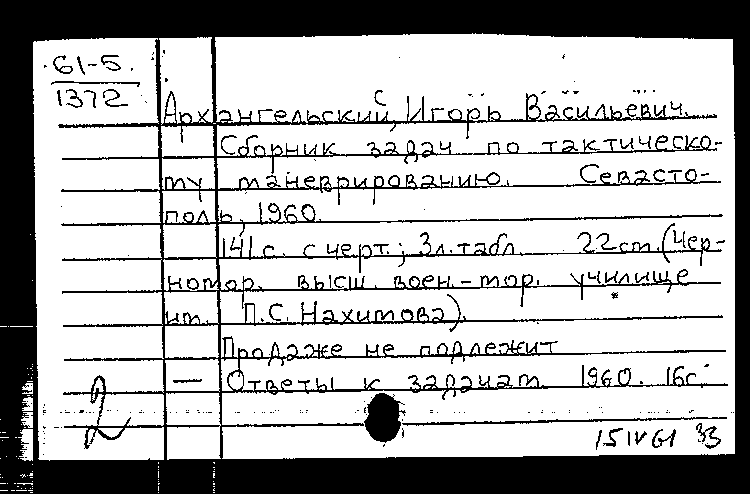 61-5.
1372
Архангельский, Игорь Васильевич.
Сборник задач по тактическо-
му маневрированию. Севасто-
поль, 1960.
141 с. с черт.; 3 л. табл. 22 см. (Чер-
номор. высш. воен.-мор. училище
им. П.С. Нахимова).
Продаже не подлежит
— Ответы к задачам 1960. 16 с.
2
15 IV 61 33